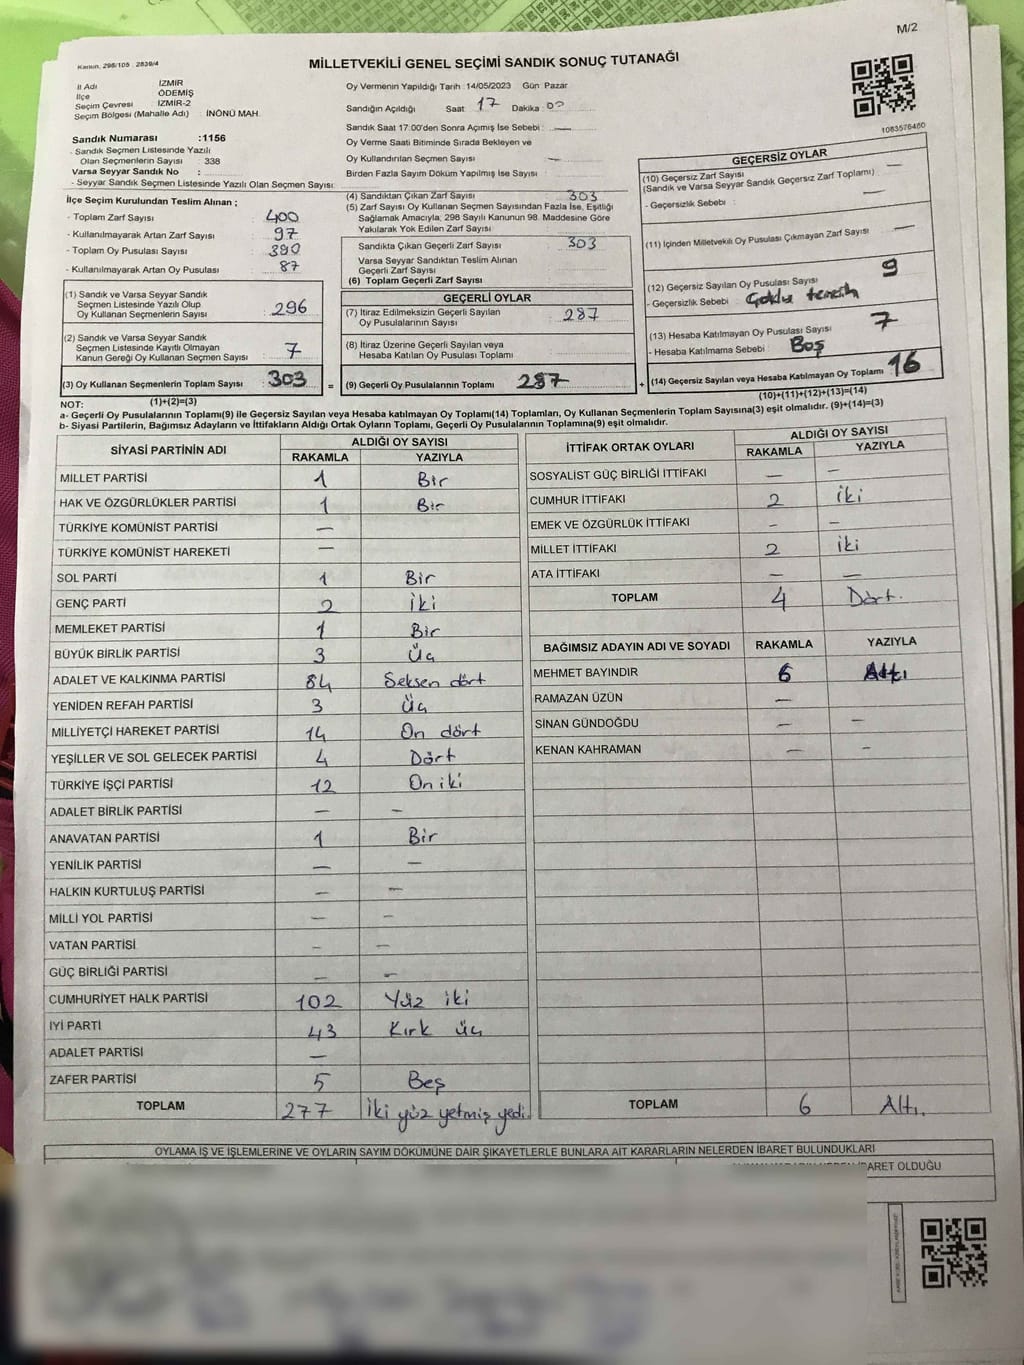 M/2
Kanun, 298/105 : 2839/4
MİLLETVEKİLİ GENEL SEÇİMİ SANDIK SONUÇ TUTANAĞI
İl Adı İZMİR
İlçe ÖDEMİŞ
Seçim Çevresi İZMİR-2
Seçim Bölgesi (Mahalle Adı) : İNÖNÜ MAH.
Sandık Numarası :1156
- Sandık Seçmen Listesinde Yazılı
Olan Seçmenlerin Sayısı : 338
Varsa Seyyar Sandık No :
- Seyyar Sandık Seçmen Listesinde Yazılı Olan Seçmen Sayısı:
Oy Vermenin Yapıldığı Tarih :14/05/2023 Gün Pazar
Sandığın Açıldığı Saat 17 Dakika :00
Sandık Saat 17:00'den Sonra Açılmış İse Sebebi : —
Oy Verme Saati Bitiminde Sırada Bekleyen ve
Oy Kullandırılan Seçmen Sayısı —
Birden Fazla Sayım Döküm Yapılmış İse Sayısı :
1083576460
İlçe Seçim Kurulundan Teslim Alınan ;
- Toplam Zarf Sayısı : 400
- Kullanılmayarak Artan Zarf Sayısı : 97
- Toplam Oy Pusulası Sayısı : 390
- Kullanılmayarak Artan Oy Pusulası : 87
(1) Sandık ve Varsa Seyyar Sandık
Seçmen Listesinde Yazılı Olup
Oy Kullanan Seçmenlerin Sayısı : 296
(2) Sandık ve Varsa Seyyar Sandık
Seçmen Listesinde Kayıtlı Olmayan
Kanun Gereği Oy Kullanan Seçmen Sayısı : 7
(3) Oy Kullanan Seçmenlerin Toplam Sayısı : 303
(1)+(2)=(3)
(4) Sandıktan Çıkan Zarf Sayısı : 303
(5) Zarf Sayısı Oy Kullanan Seçmen Sayısından Fazla İse, Eşitliği
Sağlamak Amacıyla; 298 Sayılı Kanunun 98. Maddesine Göre
Yakılarak Yok Edilen Zarf Sayısı :
Sandıkta Çıkan Geçerli Zarf Sayısı : 303
Varsa Seyyar Sandıktan Teslim Alınan
Geçerli Zarf Sayısı :
(6) Toplam Geçerli Zarf Sayısı :
GEÇERLİ OYLAR
(7) İtiraz Edilmeksizin Geçerli Sayılan
Oy Pusulalarının Sayısı : 287
(8) İtiraz Üzerine Geçerli Sayılan veya
Hesaba Katılan Oy Pusulası Toplamı :
= (9) Geçerli Oy Pusulalarının Toplamı : 287
GEÇERSİZ OYLAR
(10) Geçersiz Zarf Sayısı : —
(Sandık ve Varsa Seyyar Sandık Geçersiz Zarf Toplamı) —
- Geçersizlik Sebebi :
(11) İçinden Milletvekili Oy Pusulası Çıkmayan Zarf Sayısı —
(12) Geçersiz Sayılan Oy Pusulası Sayısı : 9
- Geçersizlik Sebebi : Çoklu tercih
(13) Hesaba Katılmayan Oy Pusulası Sayısı : 7
- Hesaba Katılmama Sebebi : Boş
+ (14) Geçersiz Sayılan veya Hesaba Katılmayan Oy Toplamı : 16
(10)+(11)+(12)+(13)=(14)
NOT:
a- Geçerli Oy Pusulalarının Toplamı(9) ile Geçersiz Sayılan veya Hesaba katılmayan Oy Toplamı(14) Toplamları, Oy Kullanan Seçmenlerin Toplam Sayısına(3) eşit olmalıdır. (9)+(14)=(3)
b- Siyasi Partilerin, Bağımsız Adayların ve İttifakların Aldığı Ortak Oyların Toplamı, Geçerli Oy Pusulalarının Toplamına(9) eşit olmalıdır.
SİYASİ PARTİNİN ADI ALDIĞI OY SAYISI
RAKAMLA YAZIYLA
MİLLET PARTİSİ 1 Bir
HAK VE ÖZGÜRLÜKLER PARTİSİ 1 Bir
TÜRKİYE KOMÜNİST PARTİSİ —
TÜRKİYE KOMÜNİST HAREKETİ —
SOL PARTİ 1 Bir
GENÇ PARTİ 2 İki
MEMLEKET PARTİSİ 1 Bir
BÜYÜK BİRLİK PARTİSİ 3 Üç
ADALET VE KALKINMA PARTİSİ 84 Seksen dört
YENİDEN REFAH PARTİSİ 3 Üç
MİLLİYETÇİ HAREKET PARTİSİ 14 On dört
YEŞİLLER VE SOL GELECEK PARTİSİ 4 Dört
TÜRKİYE İŞÇİ PARTİSİ 12 On iki
ADALET BİRLİK PARTİSİ — —
ANAVATAN PARTİSİ 1 Bir
YENİLİK PARTİSİ — —
HALKIN KURTULUŞ PARTİSİ — —
MİLLİ YOL PARTİSİ — —
VATAN PARTİSİ — —
GÜÇ BİRLİĞİ PARTİSİ — —
CUMHURİYET HALK PARTİSİ 102 Yüz iki
İYİ PARTİ 43 Kırk üç
ADALET PARTİSİ —
ZAFER PARTİSİ 5 Beş
TOPLAM 277 İki yüz yetmiş yedi.
İTTİFAK ORTAK OYLARI ALDIĞI OY SAYISI
RAKAMLA YAZIYLA
SOSYALİST GÜÇ BİRLİĞİ İTTİFAKI — —
CUMHUR İTTİFAKI 2 İki
EMEK VE ÖZGÜRLÜK İTTİFAKI - —
MİLLET İTTİFAKI 2 İki
ATA İTTİFAKI — —
TOPLAM 4 Dört.
BAĞIMSIZ ADAYIN ADI VE SOYADI RAKAMLA YAZIYLA
MEHMET BAYINDIR 6 Altı
RAMAZAN ÜZÜN —
SİNAN GÜNDOĞDU — —
KENAN KAHRAMAN — —
TOPLAM 6 Altı.
OYLAMA İŞ VE İŞLEMLERİNE VE OYLARIN SAYIM DÖKÜMÜNE DAİR ŞİKAYETLERLE BUNLARA AİT KARARLARIN NELERDEN İBARET BULUNDUKLARI
İBARET OLDUĞU